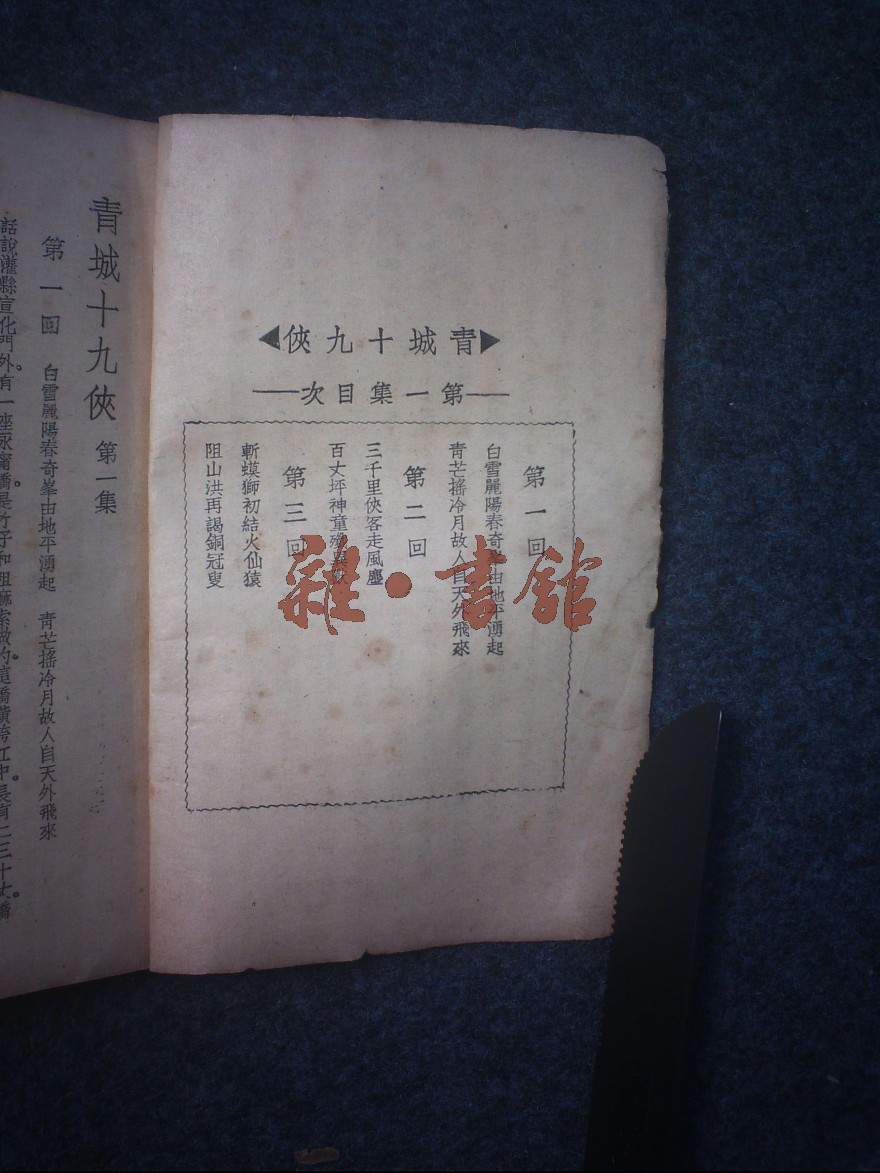 青城十九俠
第一集目次
第一回
白雪麗陽春奇峯由地平湧起
青芒搖冷月故人自天外飛來
第二回
三千里俠客走風塵
百丈坪神童
第三回
斬蟆獅初結火仙猿
阻山洪再謁銅冠叟
雜·書館
青城十九俠 第一集
第一回 白雪麗陽春奇峯由地平湧起 青芒搖冷月故人自天外飛來
話說灌縣宣化門外。有一座永甯橋。是竹子和粗麻索做的。這橋橫跨江中。長有二三十丈。橋